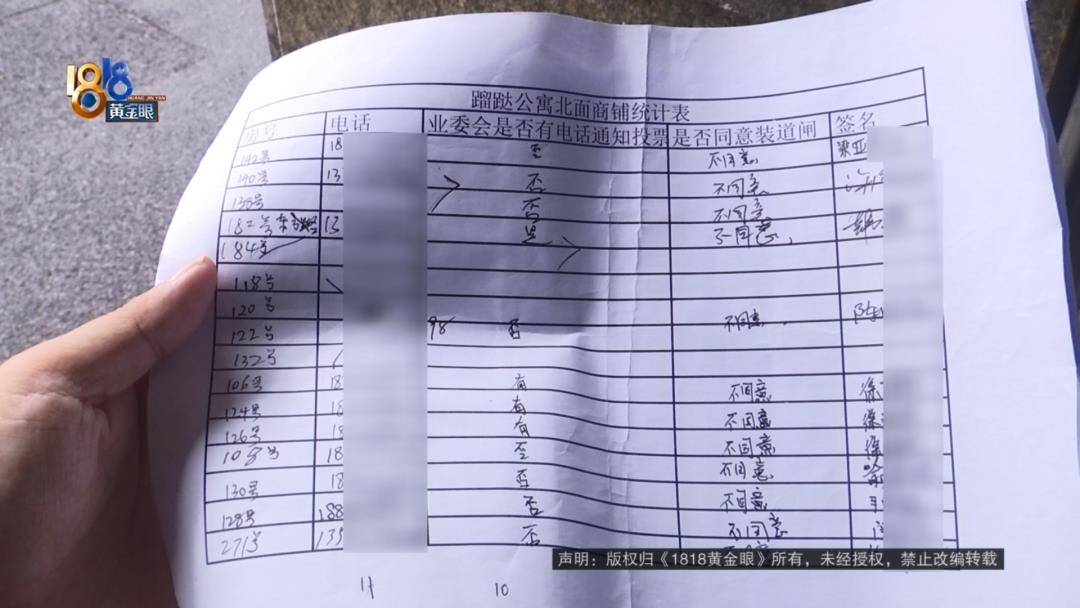 1818
HUANG JIN YAN
黄金眼
蹓跶公寓北面商铺统计表
房号 电话 业委会是否有电话通知投票 是否同意装道闸 签名
142号 18 否 不同意 梁亚
140号 13 否 不同意
138号 否 不同意
182号 13 是 不同意
184号
118号
120号
122号 98 否 不同意 陈
132号
106号 18 有 不同意 徐
124号 18 有 不同意 徐
126号 18 有 不同意 徐
108号 18 否 不同意 喻
130号 18 否 不同意
128号 188 否 不同意
271号 135 否
11 10
声明：版权归《1818黄金眼》所有，未经授权，禁止改编转载